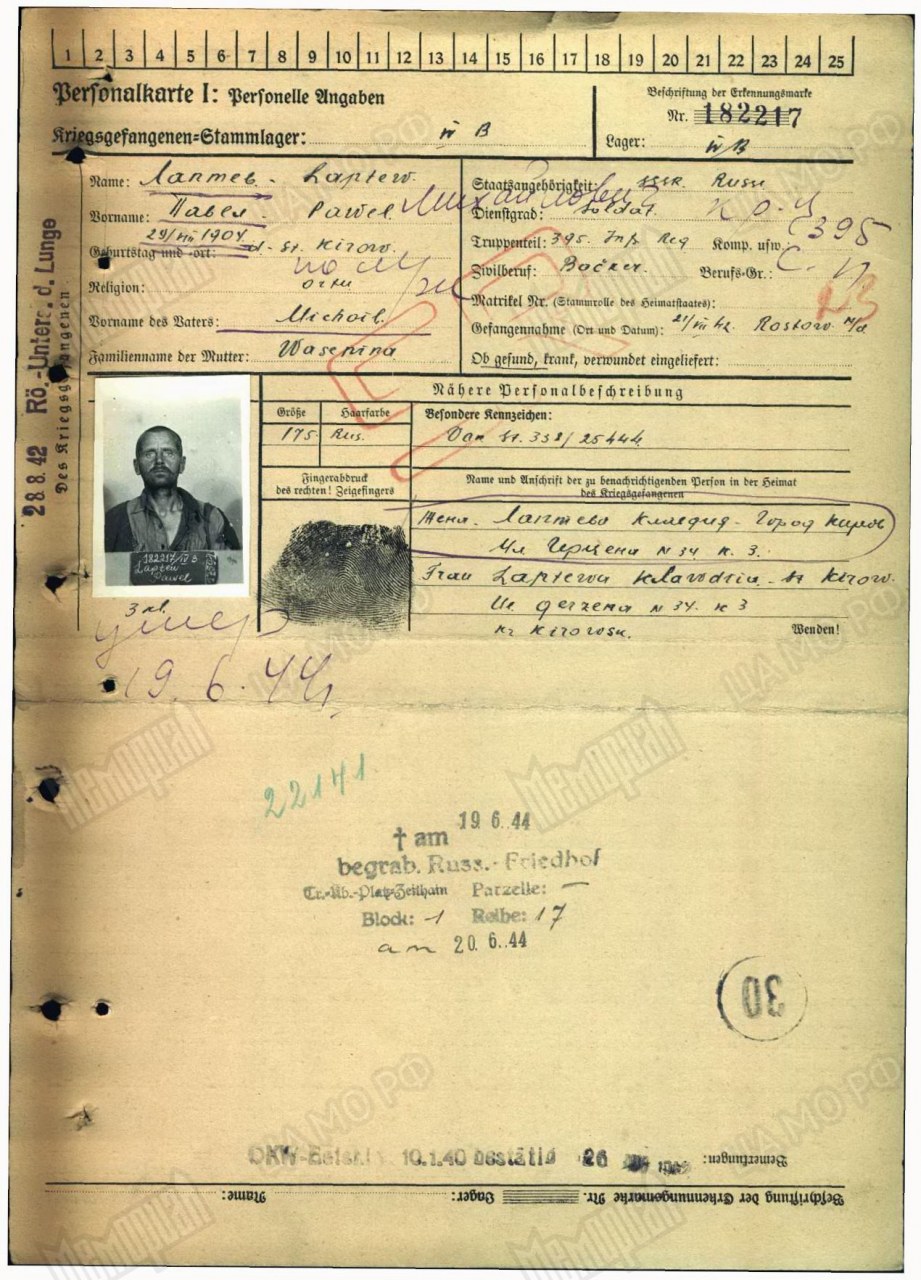 1 2 3 4 5 6 7 8 9 10 11 12 13 14 15 16 17 18 19 20 21 22 23 24 25
Personalkarte I: Personelle Angaben
Beschriftung der Erkennungsmarke
Nr. 182217
Kriegsgefangenen-Stammlager: IV B
Lager: IV B
Name: Лаптев - Laptew.
Vorname: Павел - Pawel Михайлович
29/VIII 1904
Geburtstag und -ort: st. Kirow.
Religion: orth
Vorname des Vaters: Michail.
Familienname der Mutter: Wasenina
Staatsangehörigkeit: Russ
Dienstgrad: Soldat.
395
Truppenteil: 395. Inf Reg Komp. usw.
Zivilberuf: Bäcker. Berufs-Gr.:
Matrikel Nr. (Stammrolle des Heimatstaates):
Gefangennahme (Ort und Datum): Rostow
Ob gesund, krank, verwundet eingeliefert:
28 8. 42 Rö.-Unters. d. Lunge
Des Kriegsgefangenen
Nähere Personalbeschreibung
Größe Haarfarbe Besondere Kennzeichen:
175 Rus.
Fingerabdruck
des rechten! Zeigefingers
Name und Anschrift der zu benachrichtigenden Person in der Heimat
des Kriegsgefangenen
Жена. Лаптева Клавдия - Город Киров
Ул Герцена N 34 к. 3.
Frau Laptewa Klawdria - st Kirow.
Ul Gerzena N 34. к 3
Wenden!
182217/IV B
Laptew
Pawel
3 кл.
умер
19. 6. 44г.
22141
† am 19 6. 44
begrab. Russ.- Friedhof
Tr.-Üb.-Platz Zeithain Parzelle: —
Block: 1 Reihe: 17
am 20. 6. 44
30
Bemerkungen:
10.1.40 bestätig 26
Beschriftung der Erkennungsmarke Nr. Lager: Name:
Мемориал
ЦАМО РФ